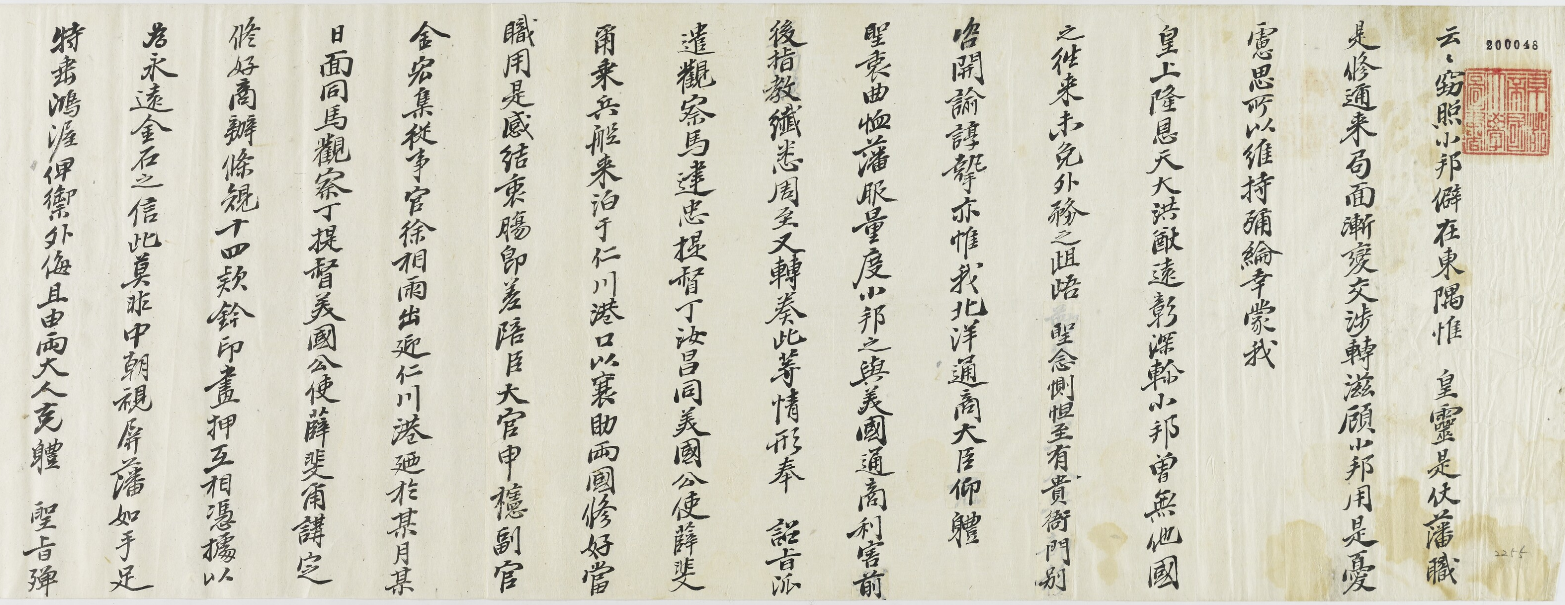 200048
云〻窃照小邦僻在東隅惟　皇靈是仗藩職
是修邇来局面漸變交渉轉滋顧小邦用是憂
慮思所以維持彌綸幸蒙我
皇上隆恩天大洪猷遠彰深軫小邦曽無他國
之徃来未免外務之齟齬　聖念惻怛至有貴衙門別
咨開諭諄摯亦惟我北洋通商大臣仰軆
聖衷曲恤藩服量度小邦之與美國通商利害前
後指教纖悉周至又轉奏此等情形奉　詔旨派
遣觀察馬建忠提督丁汝昌同美國公使薛斐
甭乗兵舩来泊于仁川港口以襄助兩國修好當
職用是感結衷膓即差陪臣大官申櫶副官
金宏集從事官徐相雨出迎仁川港廼於某月某
日面同馬觀察丁提督美國公使薛斐甭講定
修好商辦條規十四款鈐印畫押互相憑據以
為永遠金石之信此莫非中朝視屏藩如手足
特垂鴻渥俾禦外侮且由兩大人克軆　聖旨殫
2255